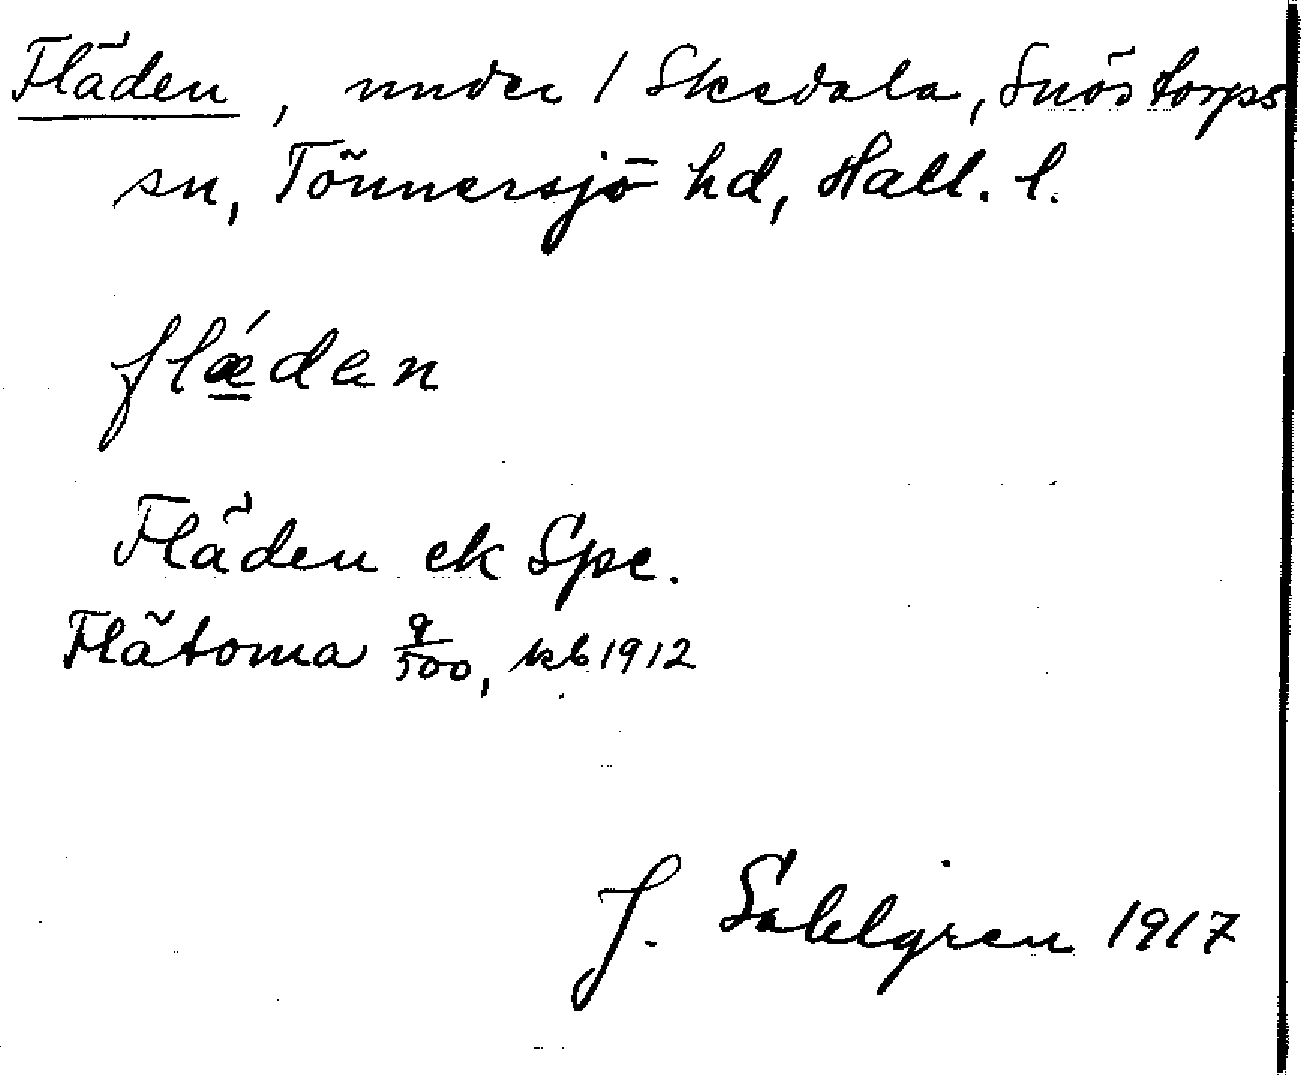 Fläden, under 1 Skedala, Snöstorps
sn, Tönnersjö hd, Hall. l.
flǽdan
Fläden ek Spe.
Flätorna 9/500, kb 1912
J. Sahlgren 1917